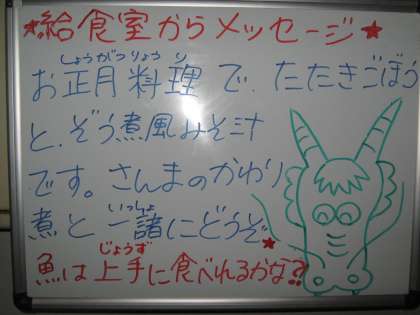 ★給食室からメッセージ★
お正月料理で、たたきごぼう
しょうがつりょうり
と、ぞう煮風みそ汁
です。さんまのかわり
煮と一諸にどうぞ★
いっしょ
魚は上手に食べれるかな?
じょうず